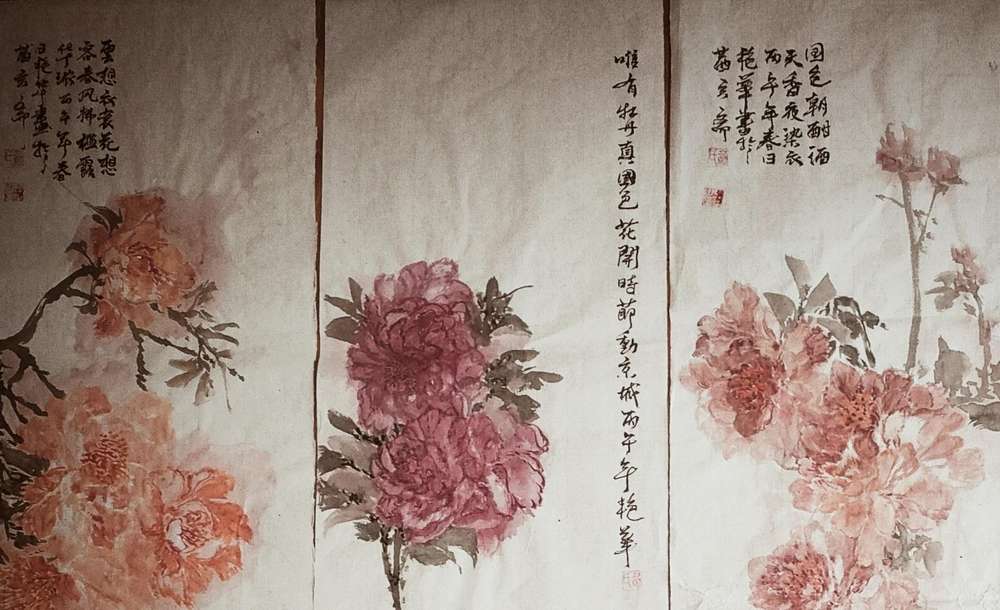 国色朝酣酒
天香夜染衣
丙午年春日
艳華畫於
唯有牡丹真國色花開時節動京城丙午年艳華
雲想衣裳花想
容春风拂檻露
华浓丙午年春
日艳华畫於